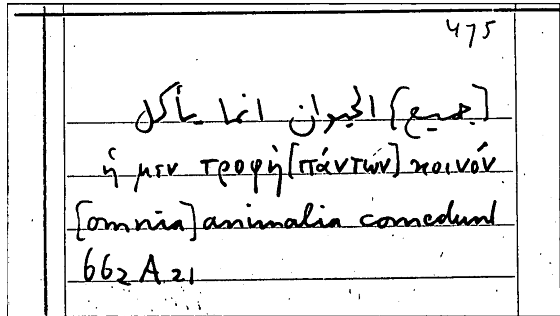 475
[جميع] الحيوان انما يأكل
ἡ μεν τροφὴ [πάντων] κοινόν
[omnia] animalia comedunt
662 A 21